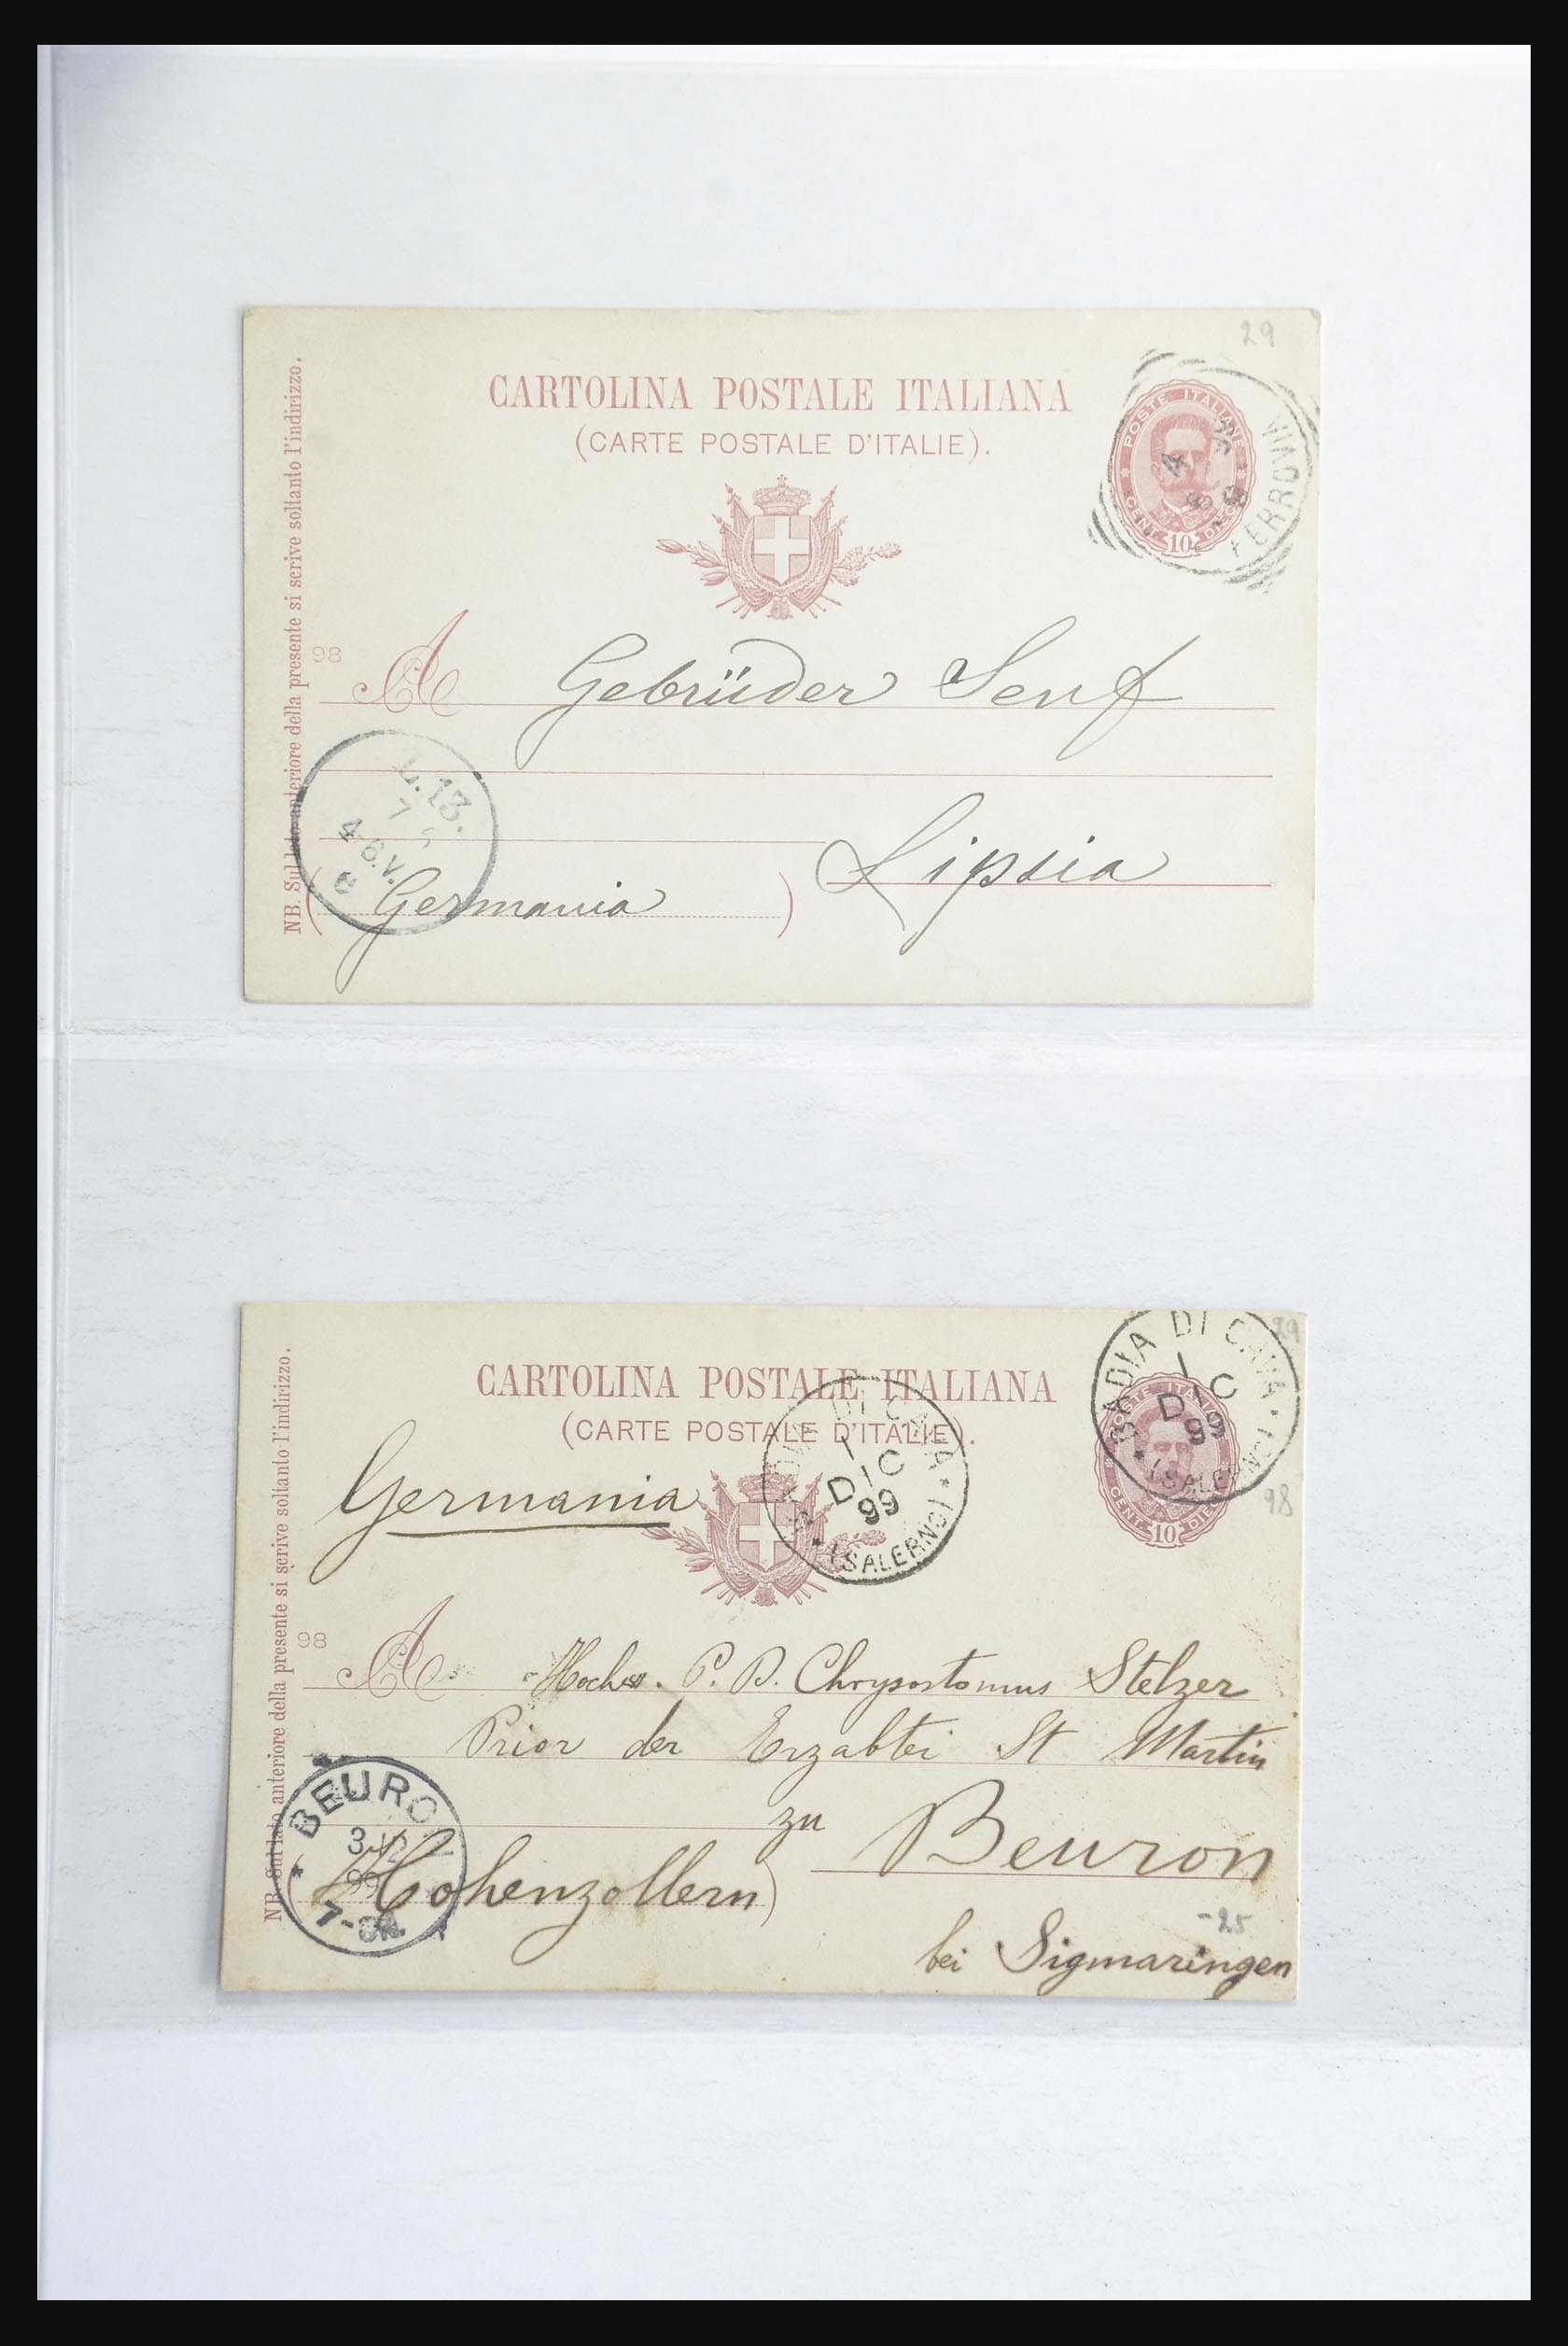 29
CARTOLINA POSTALE ITALIANA
(CARTE POSTALE D'ITALIE).
POSTE ITALIANE
CENT. 10 DIECI
FERROVIA
NB. Sul lato anteriore della presente si scrive soltanto l'indirizzo.
98
A Gebrüder Senf
Lipsia
(Germania)
L.13.
7
4-6.V.
c
CARTOLINA POSTALE ITALIANA
(CARTE POSTALE D'ITALIE).
BADIA DI CAVA
1
DIC
99
(SALERNO)
BADIA DI CAVA
1
DIC
99
(SALERNO)
POSTE ITALIANE
CENT. 10 DIECI
29
98
Germania
NB. Sul lato anteriore della presente si scrive soltanto l'indirizzo.
98
A P. D. Chrysostomus Stelzer
Prior der Erzabtei St Martin
zu Beuron
(Hohenzollern)
bei Sigmaringen
-25
BEURON
3/12
99
7-8N.